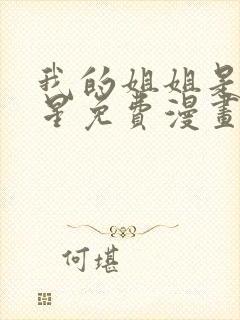 我的姐姐是
星免费漫畫
何堪